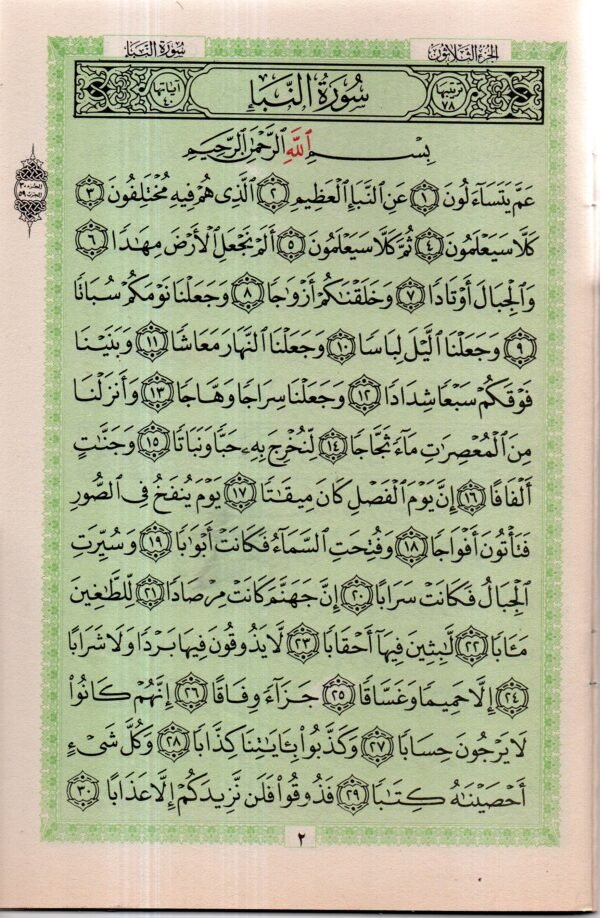 الجزء الثلاثون
سورة النبإ
ترتيبها ٧٨
سُورَةُ النَّبَإِ
آياتها ٤٠
بِسْمِ اللَّهِ الرَّحْمَٰنِ الرَّحِيمِ
عَمَّ يَتَسَآءَلُونَ ١ عَنِ ٱلنَّبَإِ ٱلْعَظِيمِ ٢ ٱلَّذِى هُمْ فِيهِ مُخْتَلِفُونَ ٣
كَلَّا سَيَعْلَمُونَ ٤ ثُمَّ كَلَّا سَيَعْلَمُونَ ٥ أَلَمْ نَجْعَلِ ٱلْأَرْضَ مِهَٰدًا ٦
وَٱلْجِبَالَ أَوْتَادًا ٧ وَخَلَقْنَٰكُمْ أَزْوَٰجًا ٨ وَجَعَلْنَا نَوْمَكُمْ سُبَاتًا
٩ وَجَعَلْنَا ٱلَّيْلَ لِبَاسًا ١٠ وَجَعَلْنَا ٱلنَّهَارَ مَعَاشًا ١١ وَبَنَيْنَا
فَوْقَكُمْ سَبْعًا شِدَادًا ١٢ وَجَعَلْنَا سِرَاجًا وَهَّاجًا ١٣ وَأَنزَلْنَا
مِنَ ٱلْمُعْصِرَٰتِ مَآءً ثَجَّاجًا ١٤ لِّنُخْرِجَ بِهِۦ حَبًّا وَنَبَاتًا ١٥ وَجَنَّٰتٍ
أَلْفَافًا ١٦ إِنَّ يَوْمَ ٱلْفَصْلِ كَانَ مِيقَٰتًا ١٧ يَوْمَ يُنفَخُ فِى ٱلصُّورِ
فَتَأْتُونَ أَفْوَاجًا ١٨ وَفُتِحَتِ ٱلسَّمَآءُ فَكَانَتْ أَبْوَٰبًا ١٩ وَسُيِّرَتِ
ٱلْجِبَالُ فَكَانَتْ سَرَابًا ٢٠ إِنَّ جَهَنَّمَ كَانَتْ مِرْصَادًا ٢١ لِّلطَّٰغِينَ
مَـَٔابًا ٢٢ لَّٰبِثِينَ فِيهَآ أَحْقَابًا ٢٣ لَّا يَذُوقُونَ فِيهَا بَرْدًا وَلَا شَرَابًا
٢٤ إِلَّا حَمِيمًا وَغَسَّاقًا ٢٥ جَزَآءً وِفَاقًا ٢٦ إِنَّهُمْ كَانُوا۟
لَا يَرْجُونَ حِسَابًا ٢٧ وَكَذَّبُوا۟ بِـَٔايَٰتِنَا كِذَّابًا ٢٨ وَكُلَّ شَىْءٍ
أَحْصَيْنَٰهُ كِتَٰبًا ٢٩ فَذُوقُوا۟ فَلَن نَّزِيدَكُمْ إِلَّا عَذَابًا ٣٠
الجزء ٣٠
الحزب ٥٩
٢